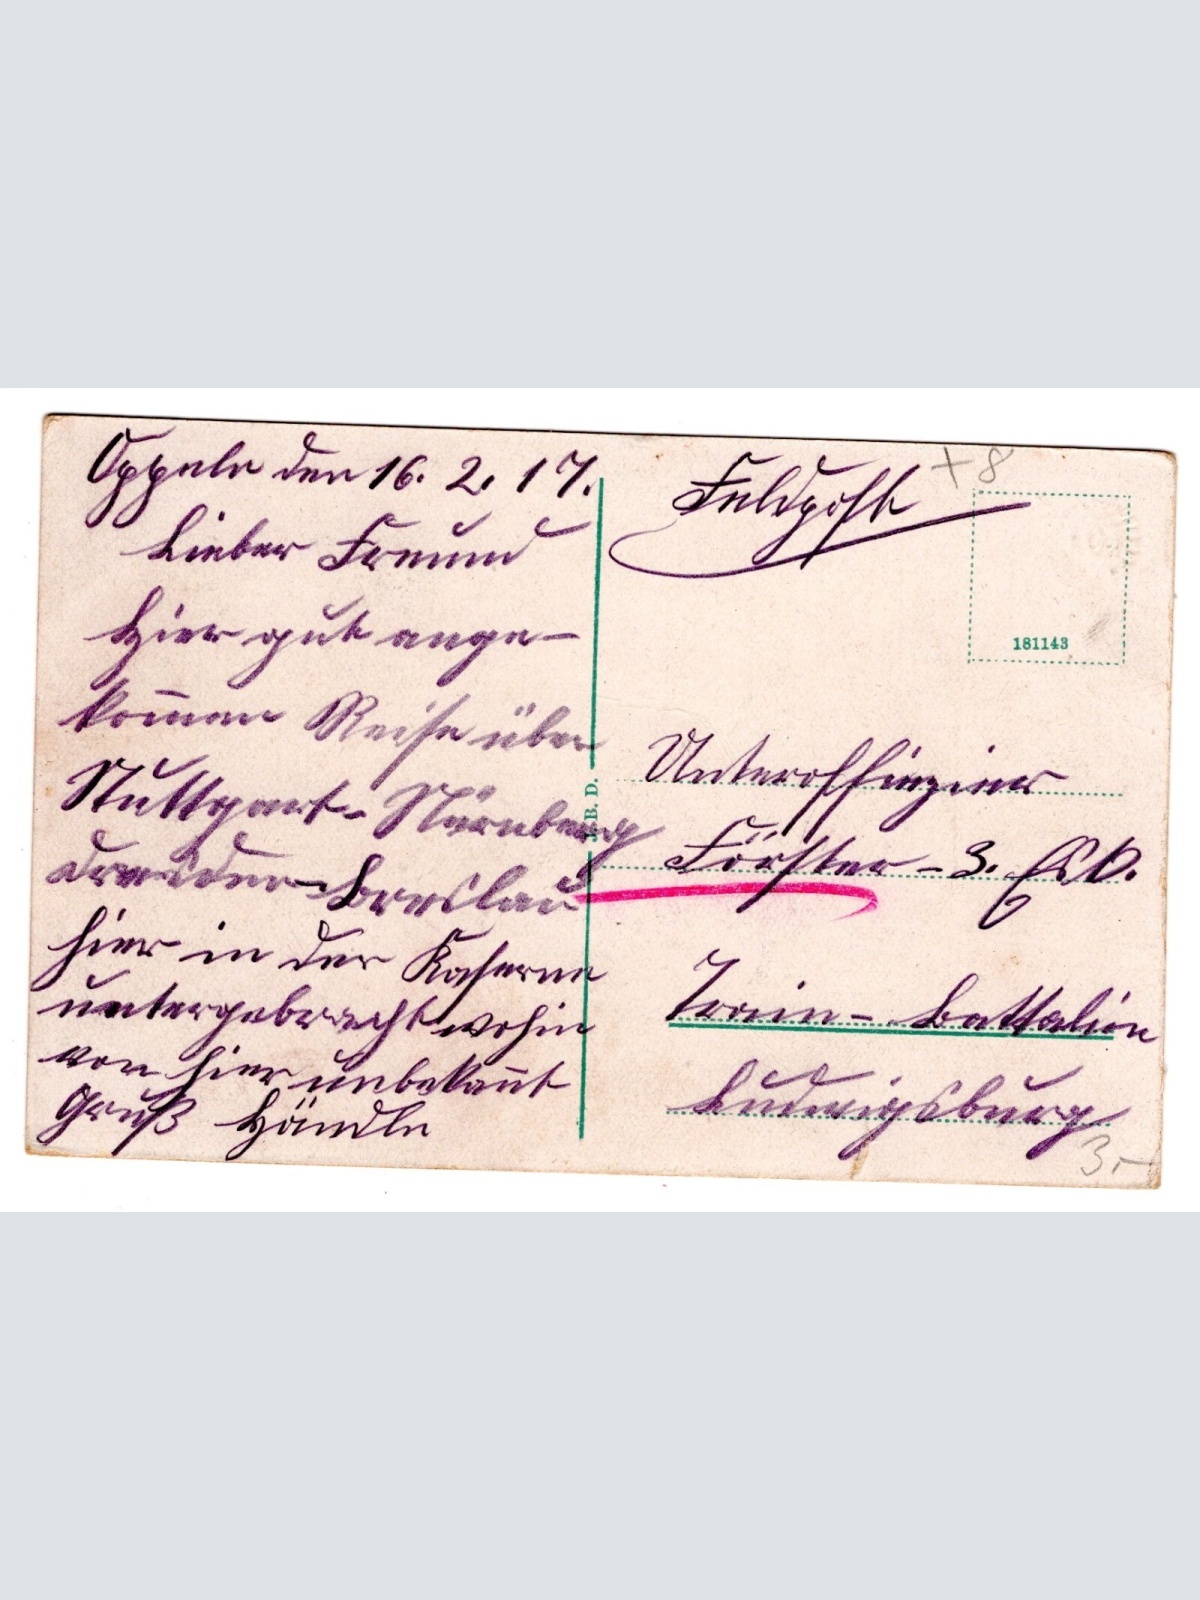 Oppeln den 16. 2. 17.
Lieber Freund
Hier gut ange-
kom̄en Reise über
Stuttgart - Nürnberg
Dresden - Breslau
hier in der Kaserne
untergebracht wohin
von hier unbekan̄t
Gruß Händle
J. B. D.
+ 8
Feldpost
181143
Unteroffizier
Förster - 3. Esk.
Train - Battalion
Ludwigsburg
3,-